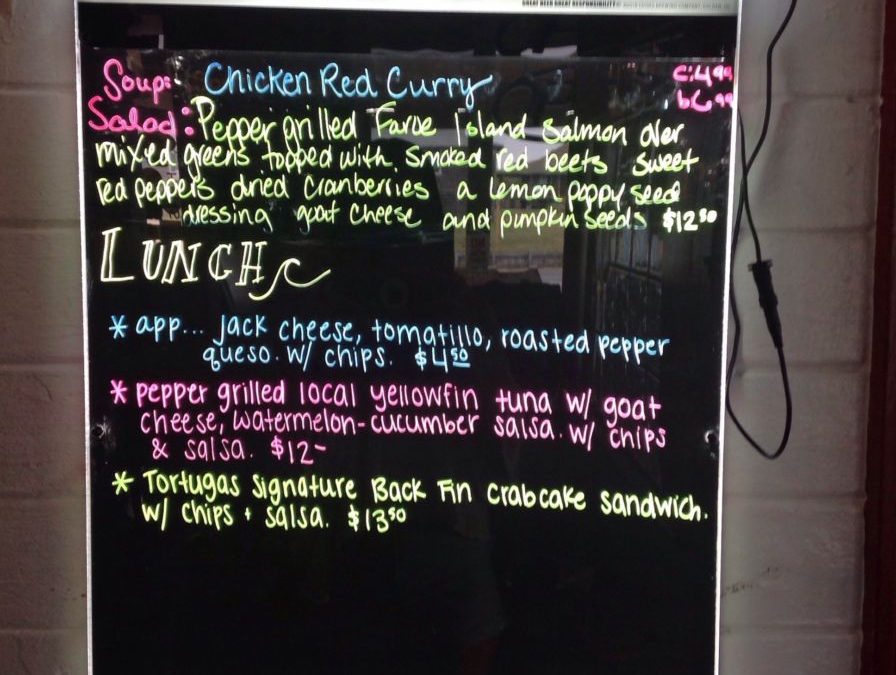 GREAT BEER GREAT RESPONSIBILITY
Soup: Chicken Red Curry c:4.99
b 6.99
Salad: Pepper grilled Faroe Island Salmon over
mixed greens topped with smoked red beets sweet
red peppers dried cranberries a lemon poppy seed
dressing goat cheese and pumpkin seeds $12.50
LUNCH
* app... jack cheese, tomatillo, roasted pepper
queso. w/ chips. $4.50
* pepper grilled local yellowfin tuna w/ goat
cheese, watermelon-cucumber salsa. w/ chips
& salsa. $12-
* Tortugas signature Back Fin crabcake sandwich.
w/ chips + salsa. $13.50